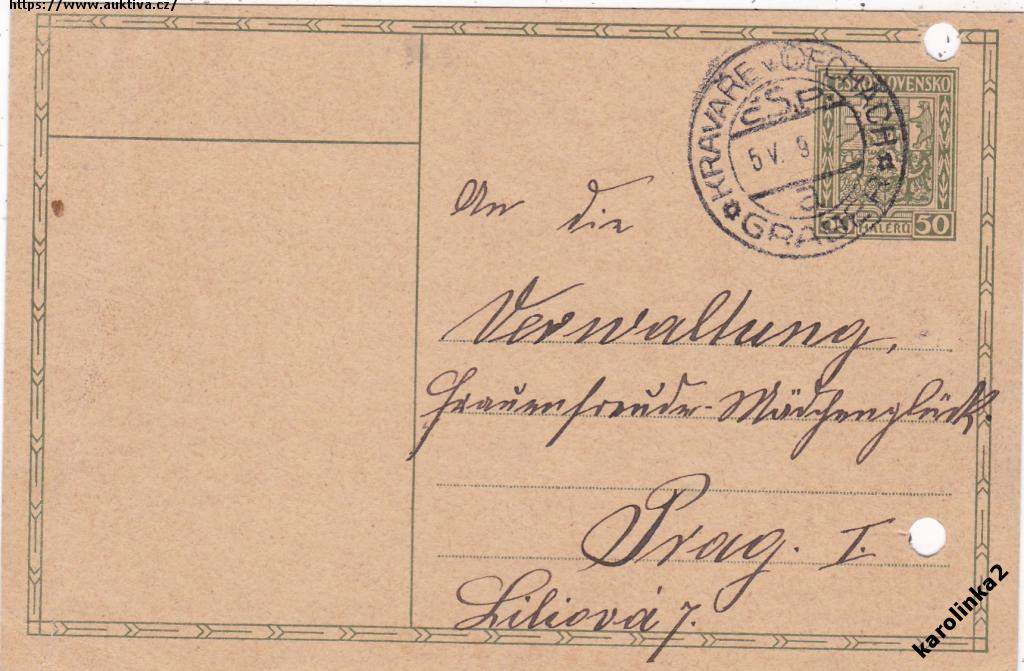 https://www.auktiva.cz/
KRAVAŘE v ČECHÁCH
Č.S.P.
5 V. 9
GRABER
ČESKOSLOVENSKO
HALÉŘŮ 50
An die
Verwaltung,
Frauenfreude-Mädchenglück.
Prag. I.
Liliová 7.
karolinka2